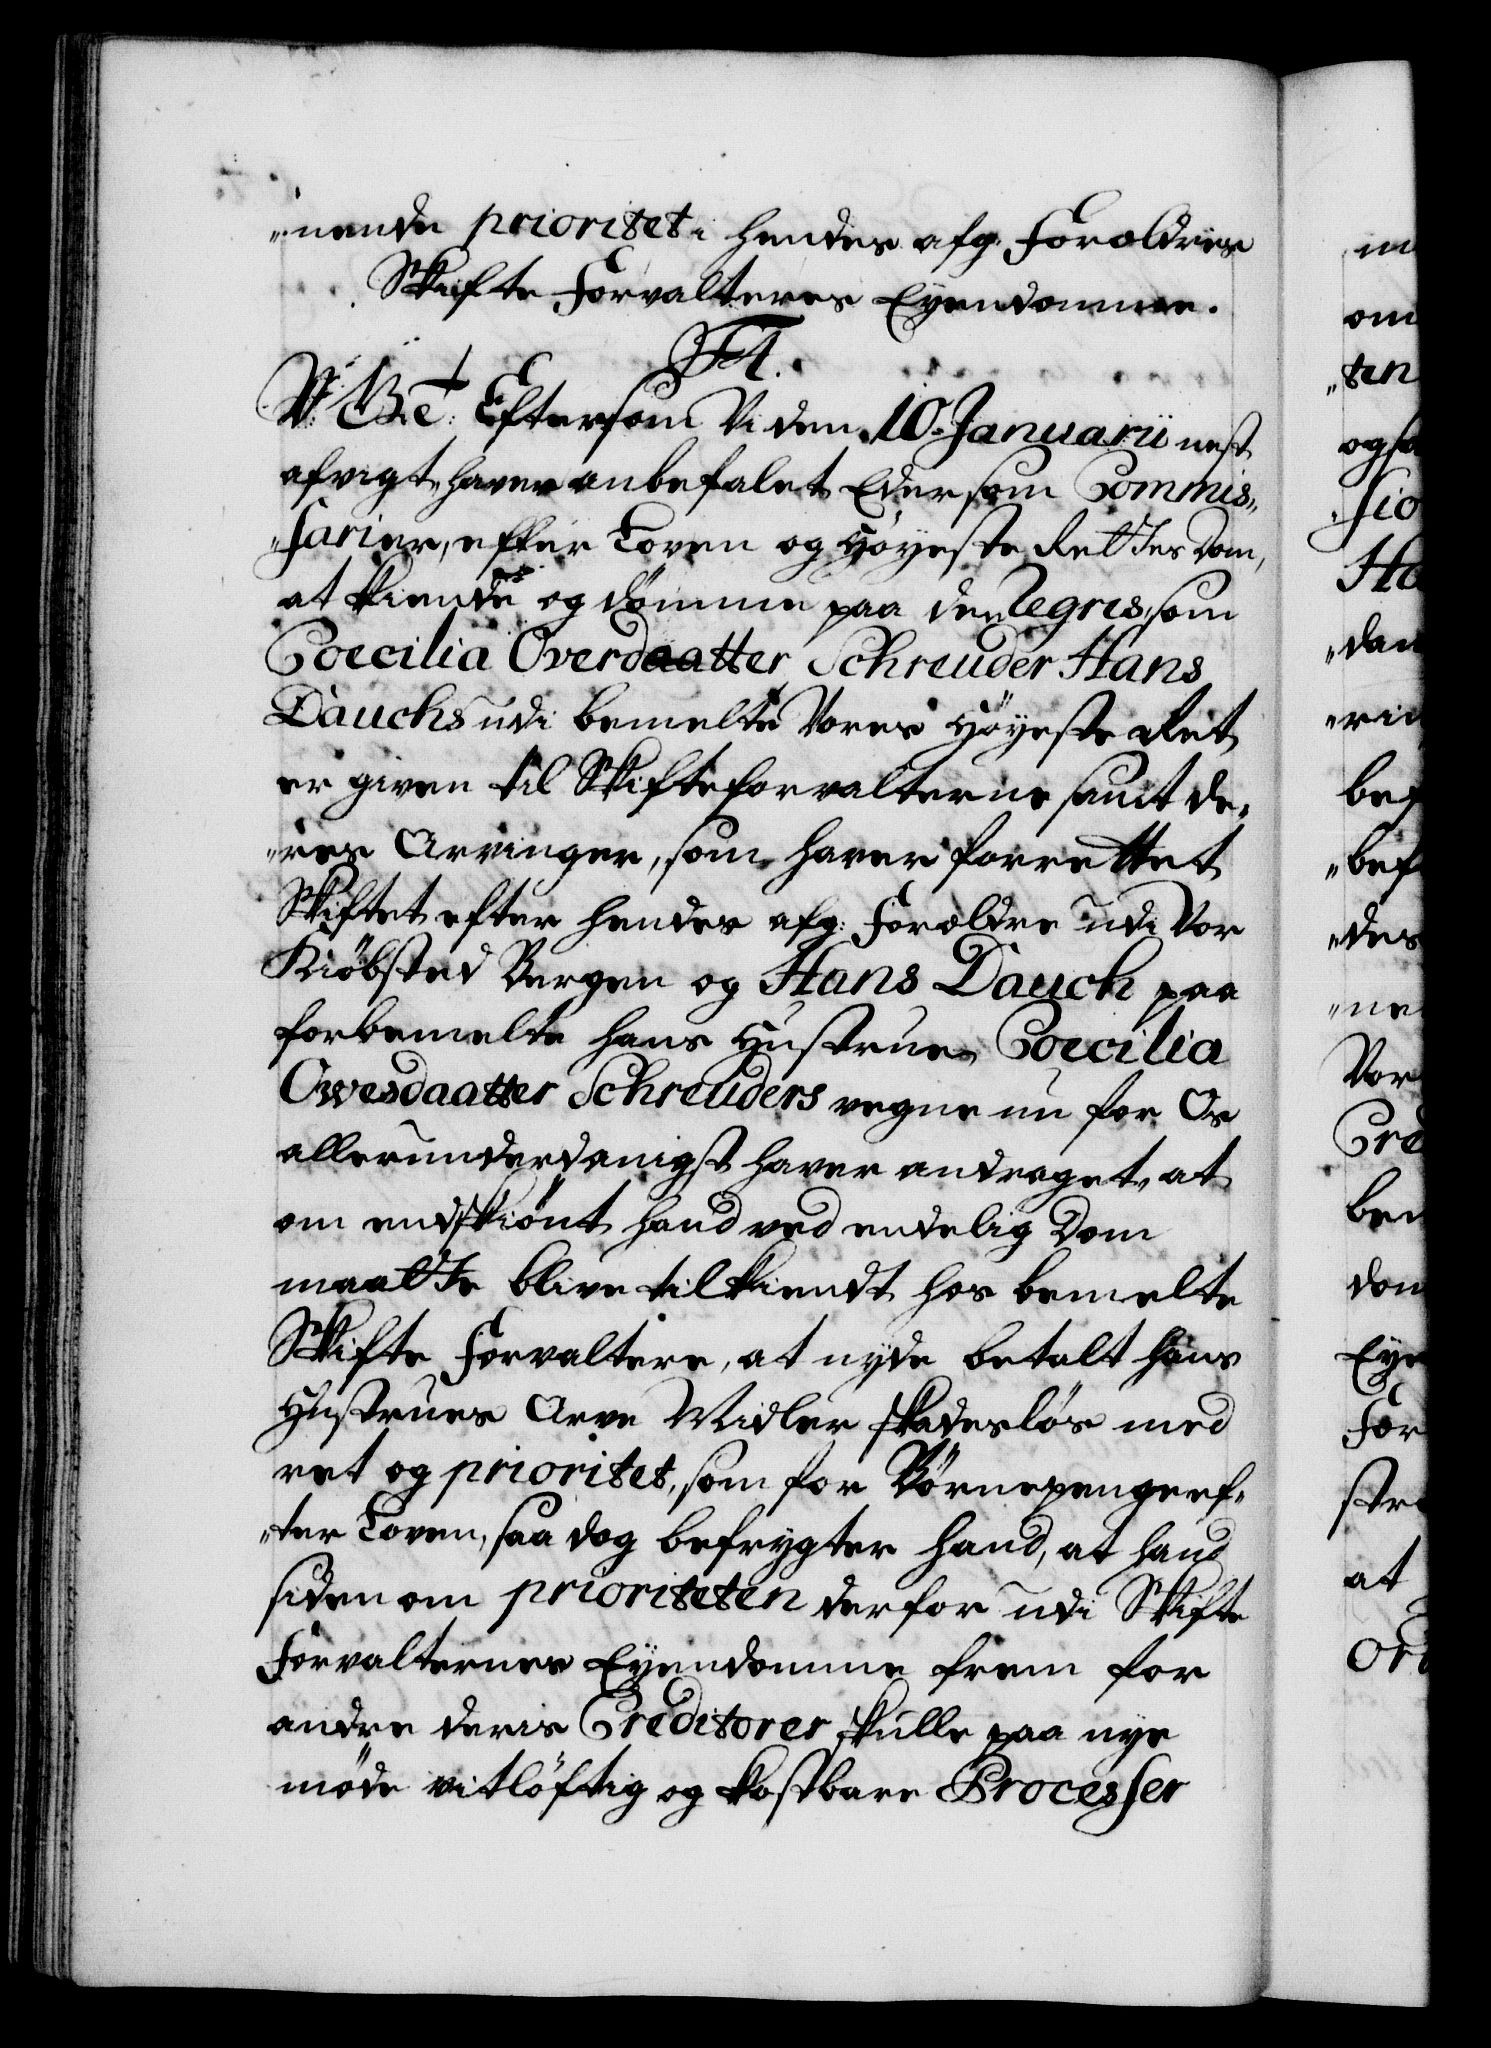 "nende prioritet i hendes afg. Forældris
Skifte Forvalteres Eyendomme.
F4.
V: G: T: Eftersom Vi den 10. Januarii nest
afvigt, haver anbefalet Eder som Commis"
"sarier, efter Loven og Höyeste Rettes Dom,
at kiende og dömme paa den Regris, som
Coecilia Overdaatter Schreuder Hans
Dauchs udi bemelte Vores Höyeste Ret
er given til Skifteforvalterne samt de"
"res Arvinger, som haver forrettet
Skiftet efter hendes afg: Forældre udi Vor
Kiöbsted Bergen og Hans Dauch paa
forbemelte hans Hustrues Coecilia
Owesdaatter Schreuders vegne nu for Os
allerunderdanigst haver andraget, at
om endskiönt hand ved endelig Dom
maatte blive tilkiendt hos bemelte
Skifte Forvaltere, at nyde betalt hans
Hustrues Arve Midler skadeslös med
ret og prioritet, som for Börnepenge ef"
"ter Loven, saa dog befrygter hand, at hand
siden om prioriteten derfor udi Skifte
Forvalternes Eyendomme frem for
andre deris Creditorer skulle paa nye
möde vitlöftig og kostbare Processer